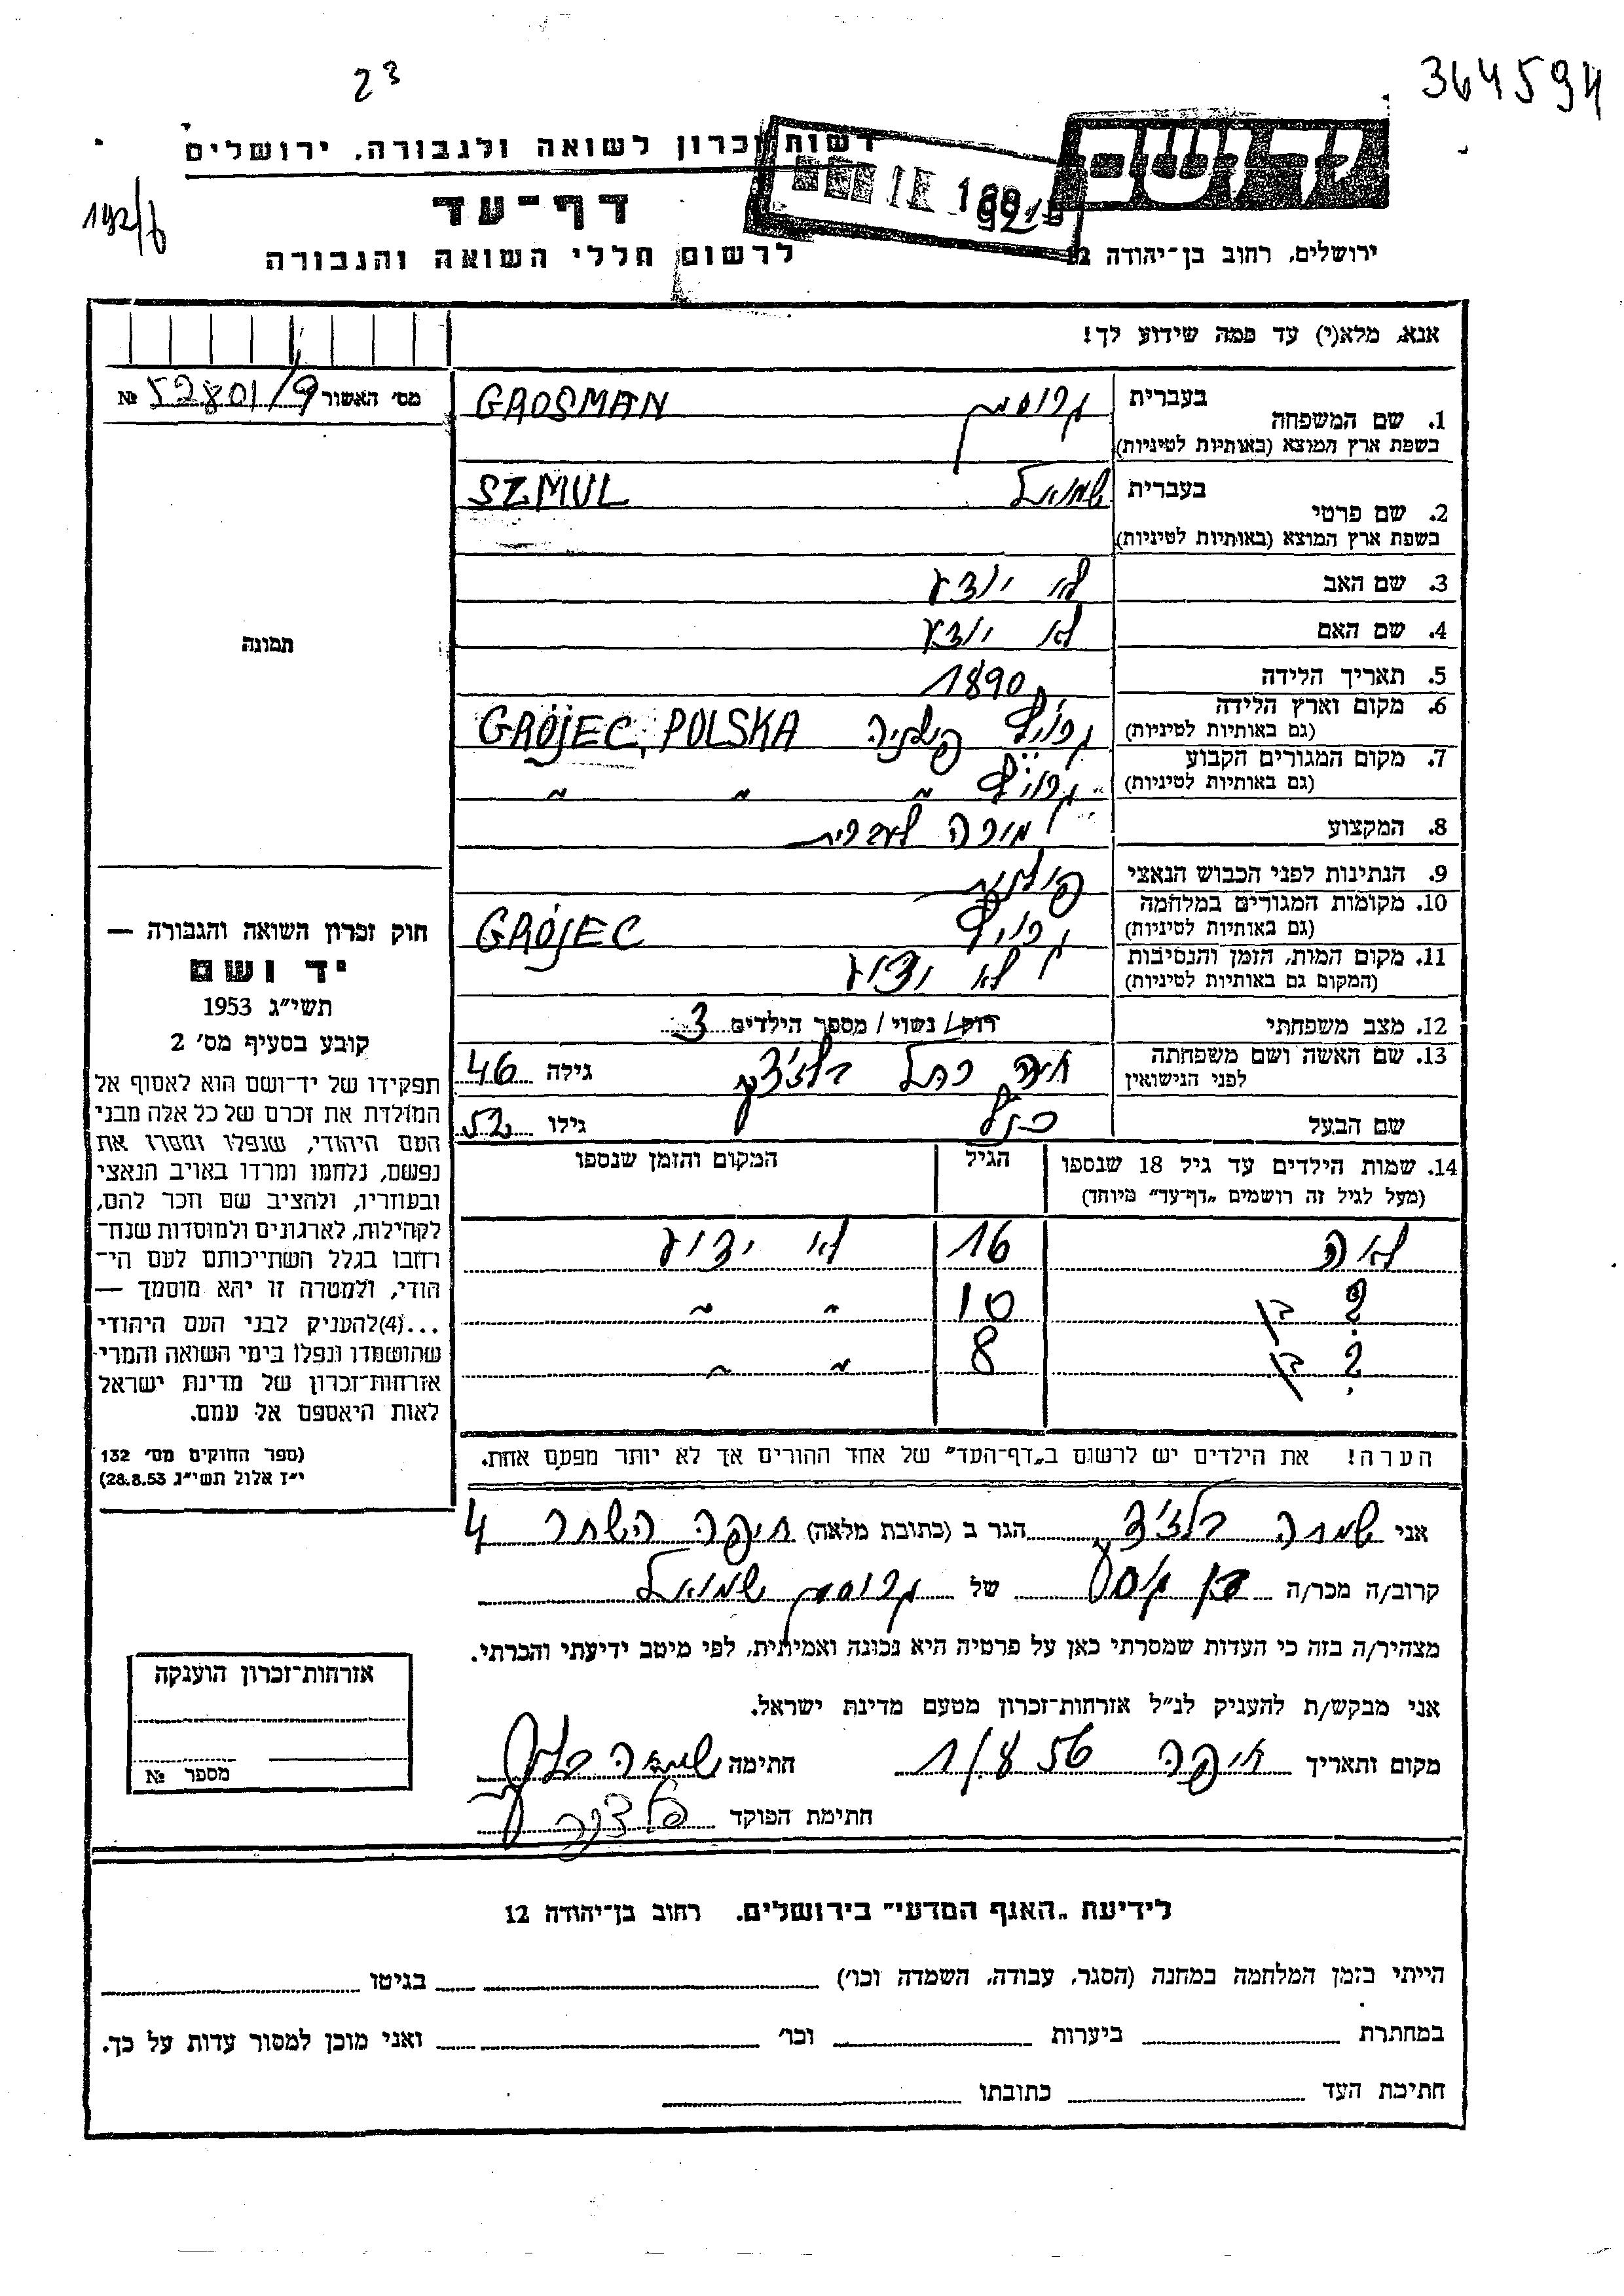 23
364594
רשות זכרון לשואה ולגבורה, ירושלים
דף-עד
192/ל
לרשום חללי השואה והגבורה
ירושלים, רחוב בן-יהודה 12
אנא, מלא(י) עד כמה שידוע לך!
מס׳ האשור № 52801/9
1. שם המשפחה
בעברית גרוסמן GROSMAN
בשפת ארץ המוצא (באותיות לטיניות)
2. שם פרטי
בעברית שמואל SZMUL
בשפת ארץ המוצא (באותיות לטיניות)
3. שם האב לא יודע
4. שם האם לא יודע
5. תאריך הלידה 1890
6. מקום וארץ הלידה (גם באותיות לטיניות) פולניה GRÓJEC, POLSKA
7. מקום המגורים הקבוע (גם באותיות לטיניות) " " "
8. המקצוע מורה לעברית
9. הנתינות לפני הכבוש הנאצי פולנית
10. מקומות המגורים במלחמה (גם באותיות לטיניות) GRÓJEC
11. מקום המות, הזמן והנסיבות (המקום גם באותיות לטיניות) לא ידוע
12. מצב משפחתי רווק / נשוי / מספר הילדים 3
13. שם האשה ושם משפחתה לפני הנישואין חיה רחל גילה 46
שם הבעל גילו 52
14. שמות הילדים עד גיל 18 שנספו הגיל המקום והזמן שנספו
(מעל לגיל זה רושמים „דף-עד" מיוחד)
לאה 16 לא ידוע
? בן 10 " "
? בן 8 " "
הערה! את הילדים יש לרשום ב„דף-העד" של אחד ההורים אך לא יותר מפעם אחת.
תמונה
חוק זכרון השואה והגבורה —
יד ושם
תשי״ג 1953
קובע בסעיף מס׳ 2
תפקידו של יד-ושם הוא לאסוף אל
המולדת את זכרם של כל אלה מבני
העם היהודי, שנפלו ומסרו את
נפשם, נלחמו ומרדו באויב הנאצי
ובעוזריו, ולהציב שם וזכר להם,
לקהילות, לארגונים ולמוסדות שנח-
רחבו בגלל השתייכותם לעם הי-
הודי, ולמטרה זו יהא מוסמך —
...(4)להעניק לבני העם היהודי
שהושמדו ונפלו בימי השואה והמרי
אזרחות-זכרון של מדינת ישראל
לאות היאספם אל עמם.
(ספר החוקים מס׳ 132
י״ז אלול תשי״ג 28.8.53)
אני שמחה הגר ב (כתובת מלאה) חיפה השחר 4
קרוב/ה מכר/ה של גרוסמן שמואל
מצהיר/ה בזה כי העדות שמסרתי כאן על פרטיה היא נכונה ואמיתית, לפי מיטב ידיעתי והכרתי.
אני מבקש/ת להעניק לנ״ל אזרחות-זכרון מטעם מדינת ישראל.
מקום ותאריך חיפה חתימה
חתימת הפוקד
אזרחות-זכרון הוענקה
מספר №
לידיעת „האגף המדעי" בירושלים. רחוב בן-יהודה 12
הייתי בזמן המלחמה במחנה (הסגר, עבודה, השמדה וכו׳) בגיטו
במחתרת ביערות וכו׳ ואני מוכן למסור עדות על כך.
חתימת העד כתובתו